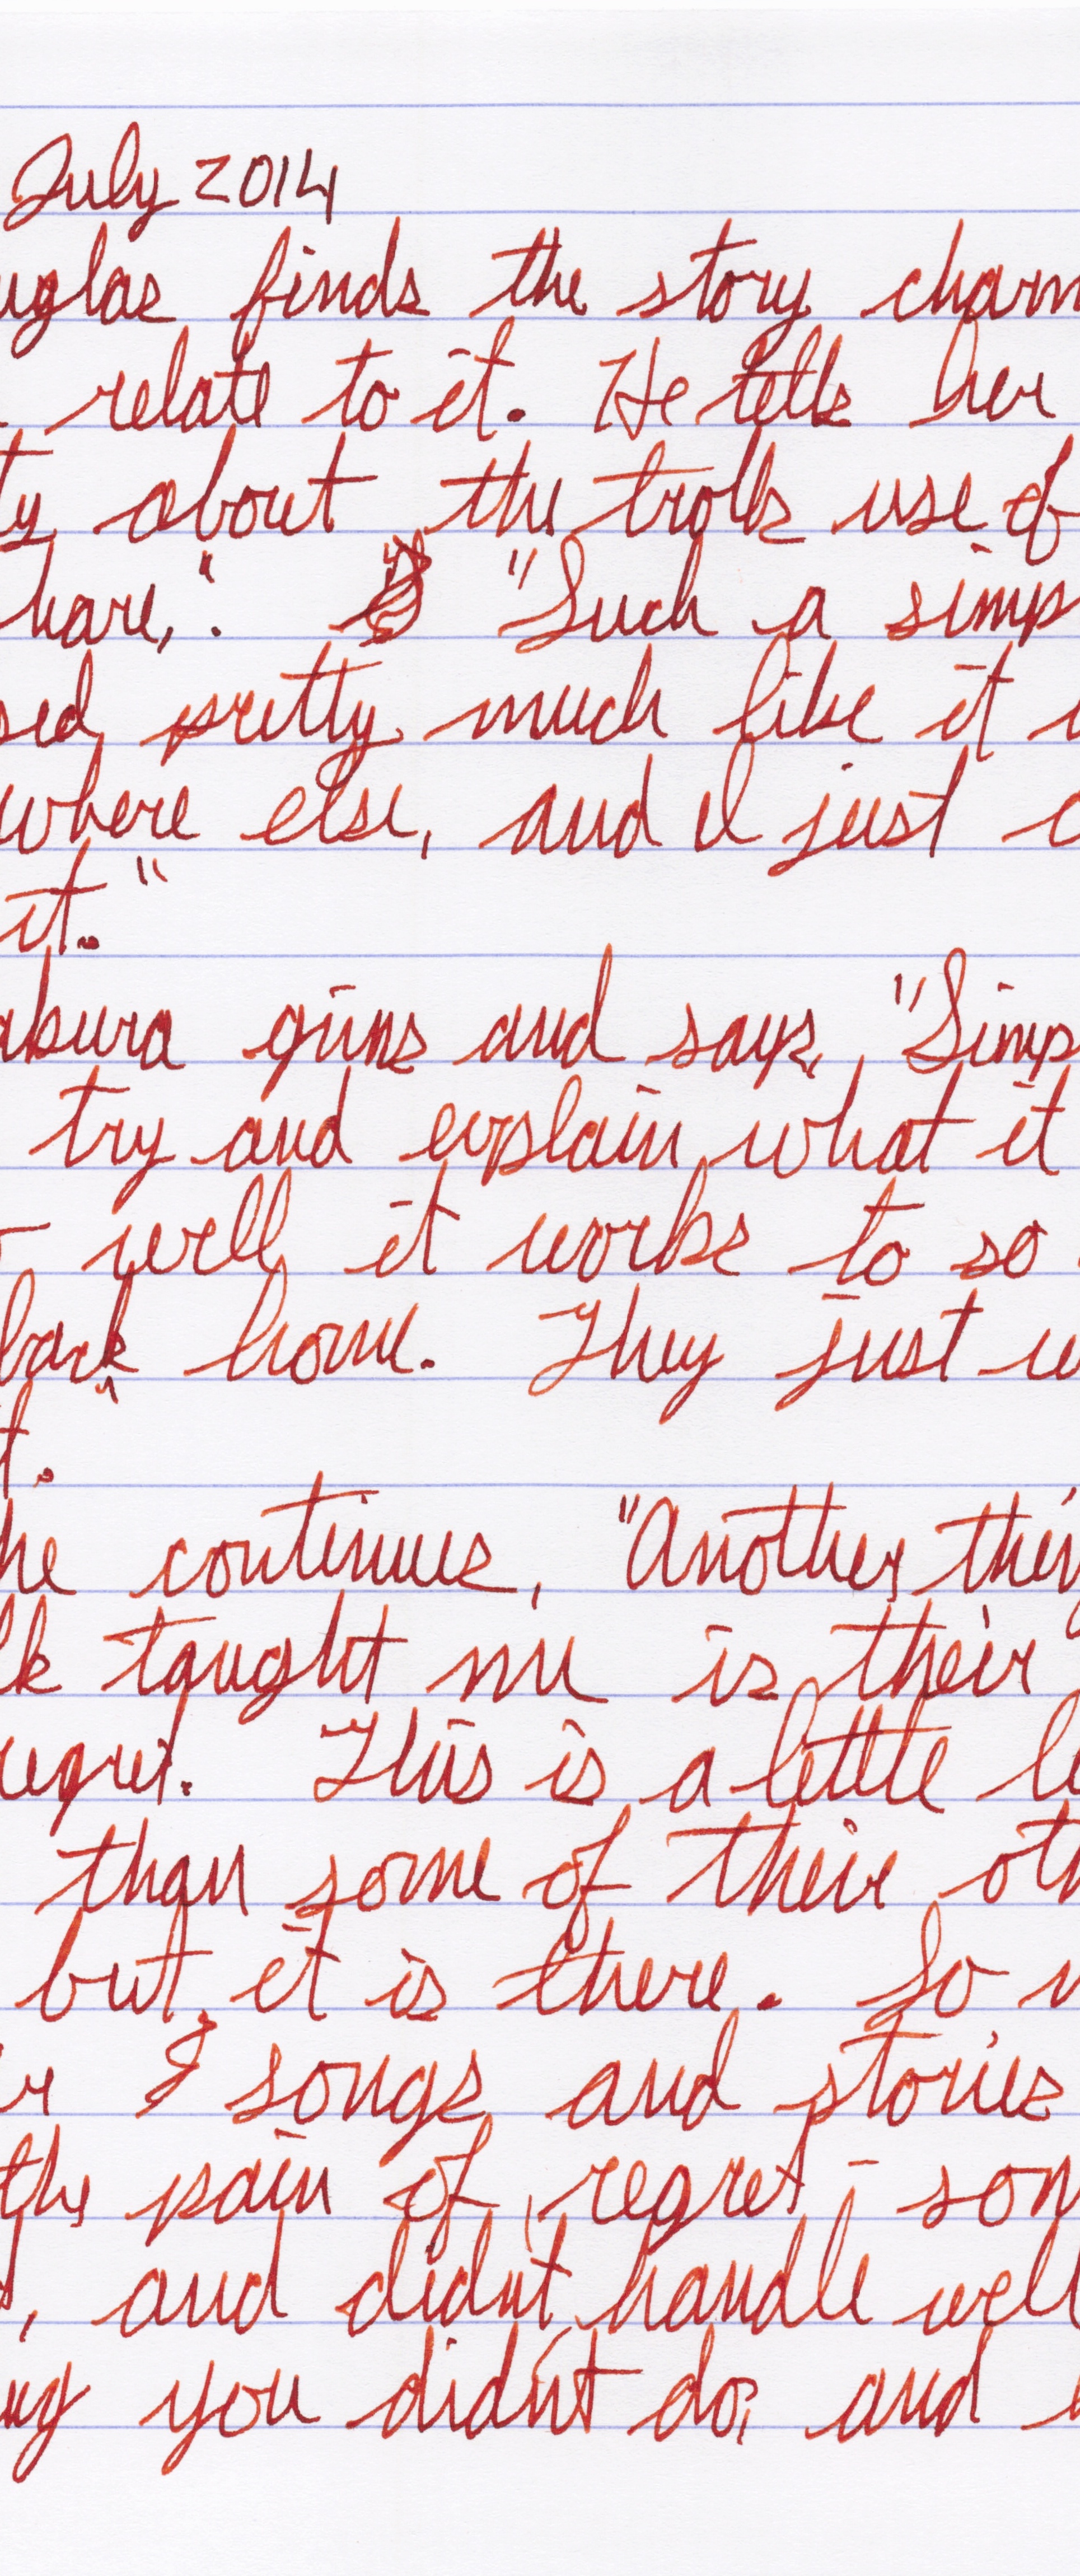 July 2014
uglas finds the story charm
relate to it. He tells her
ty about the trolls use of
hare,". "Such a simp
sed pretty much like it i
where else, and I just c
it."
abura grins and says, "Simp
try and explain what it
well it works to so
back home. They just w
t.
he continues, "Another thin
lk taught me is their
regret. This is a little le
than some of their oth
but it is there. So m
r songs and stories
the pain of regret - som
d, and didn't handle well
ng you didn't do, and i